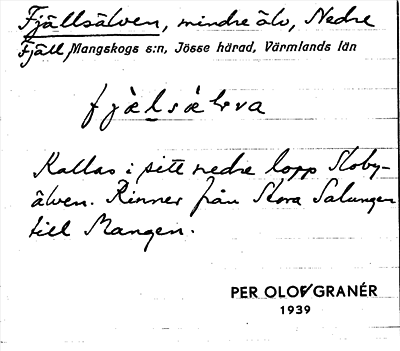 Fjällsälven, mindre älv, Nedre
Fjäll, Mangskogs s:n, Jösse härad, Värmlands län
fjälsälva
Kallas i sitt nedre lopp Stoby-
älven. Rinner från Stora Salungen
till Mangen.
PER OLOF GRANÉR
1939